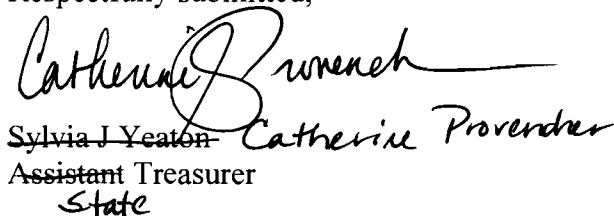 Respectfully submitted,
Catherine Provencher
Sylvia J Yeaton Catherine Provencher
Assistant Treasurer
State